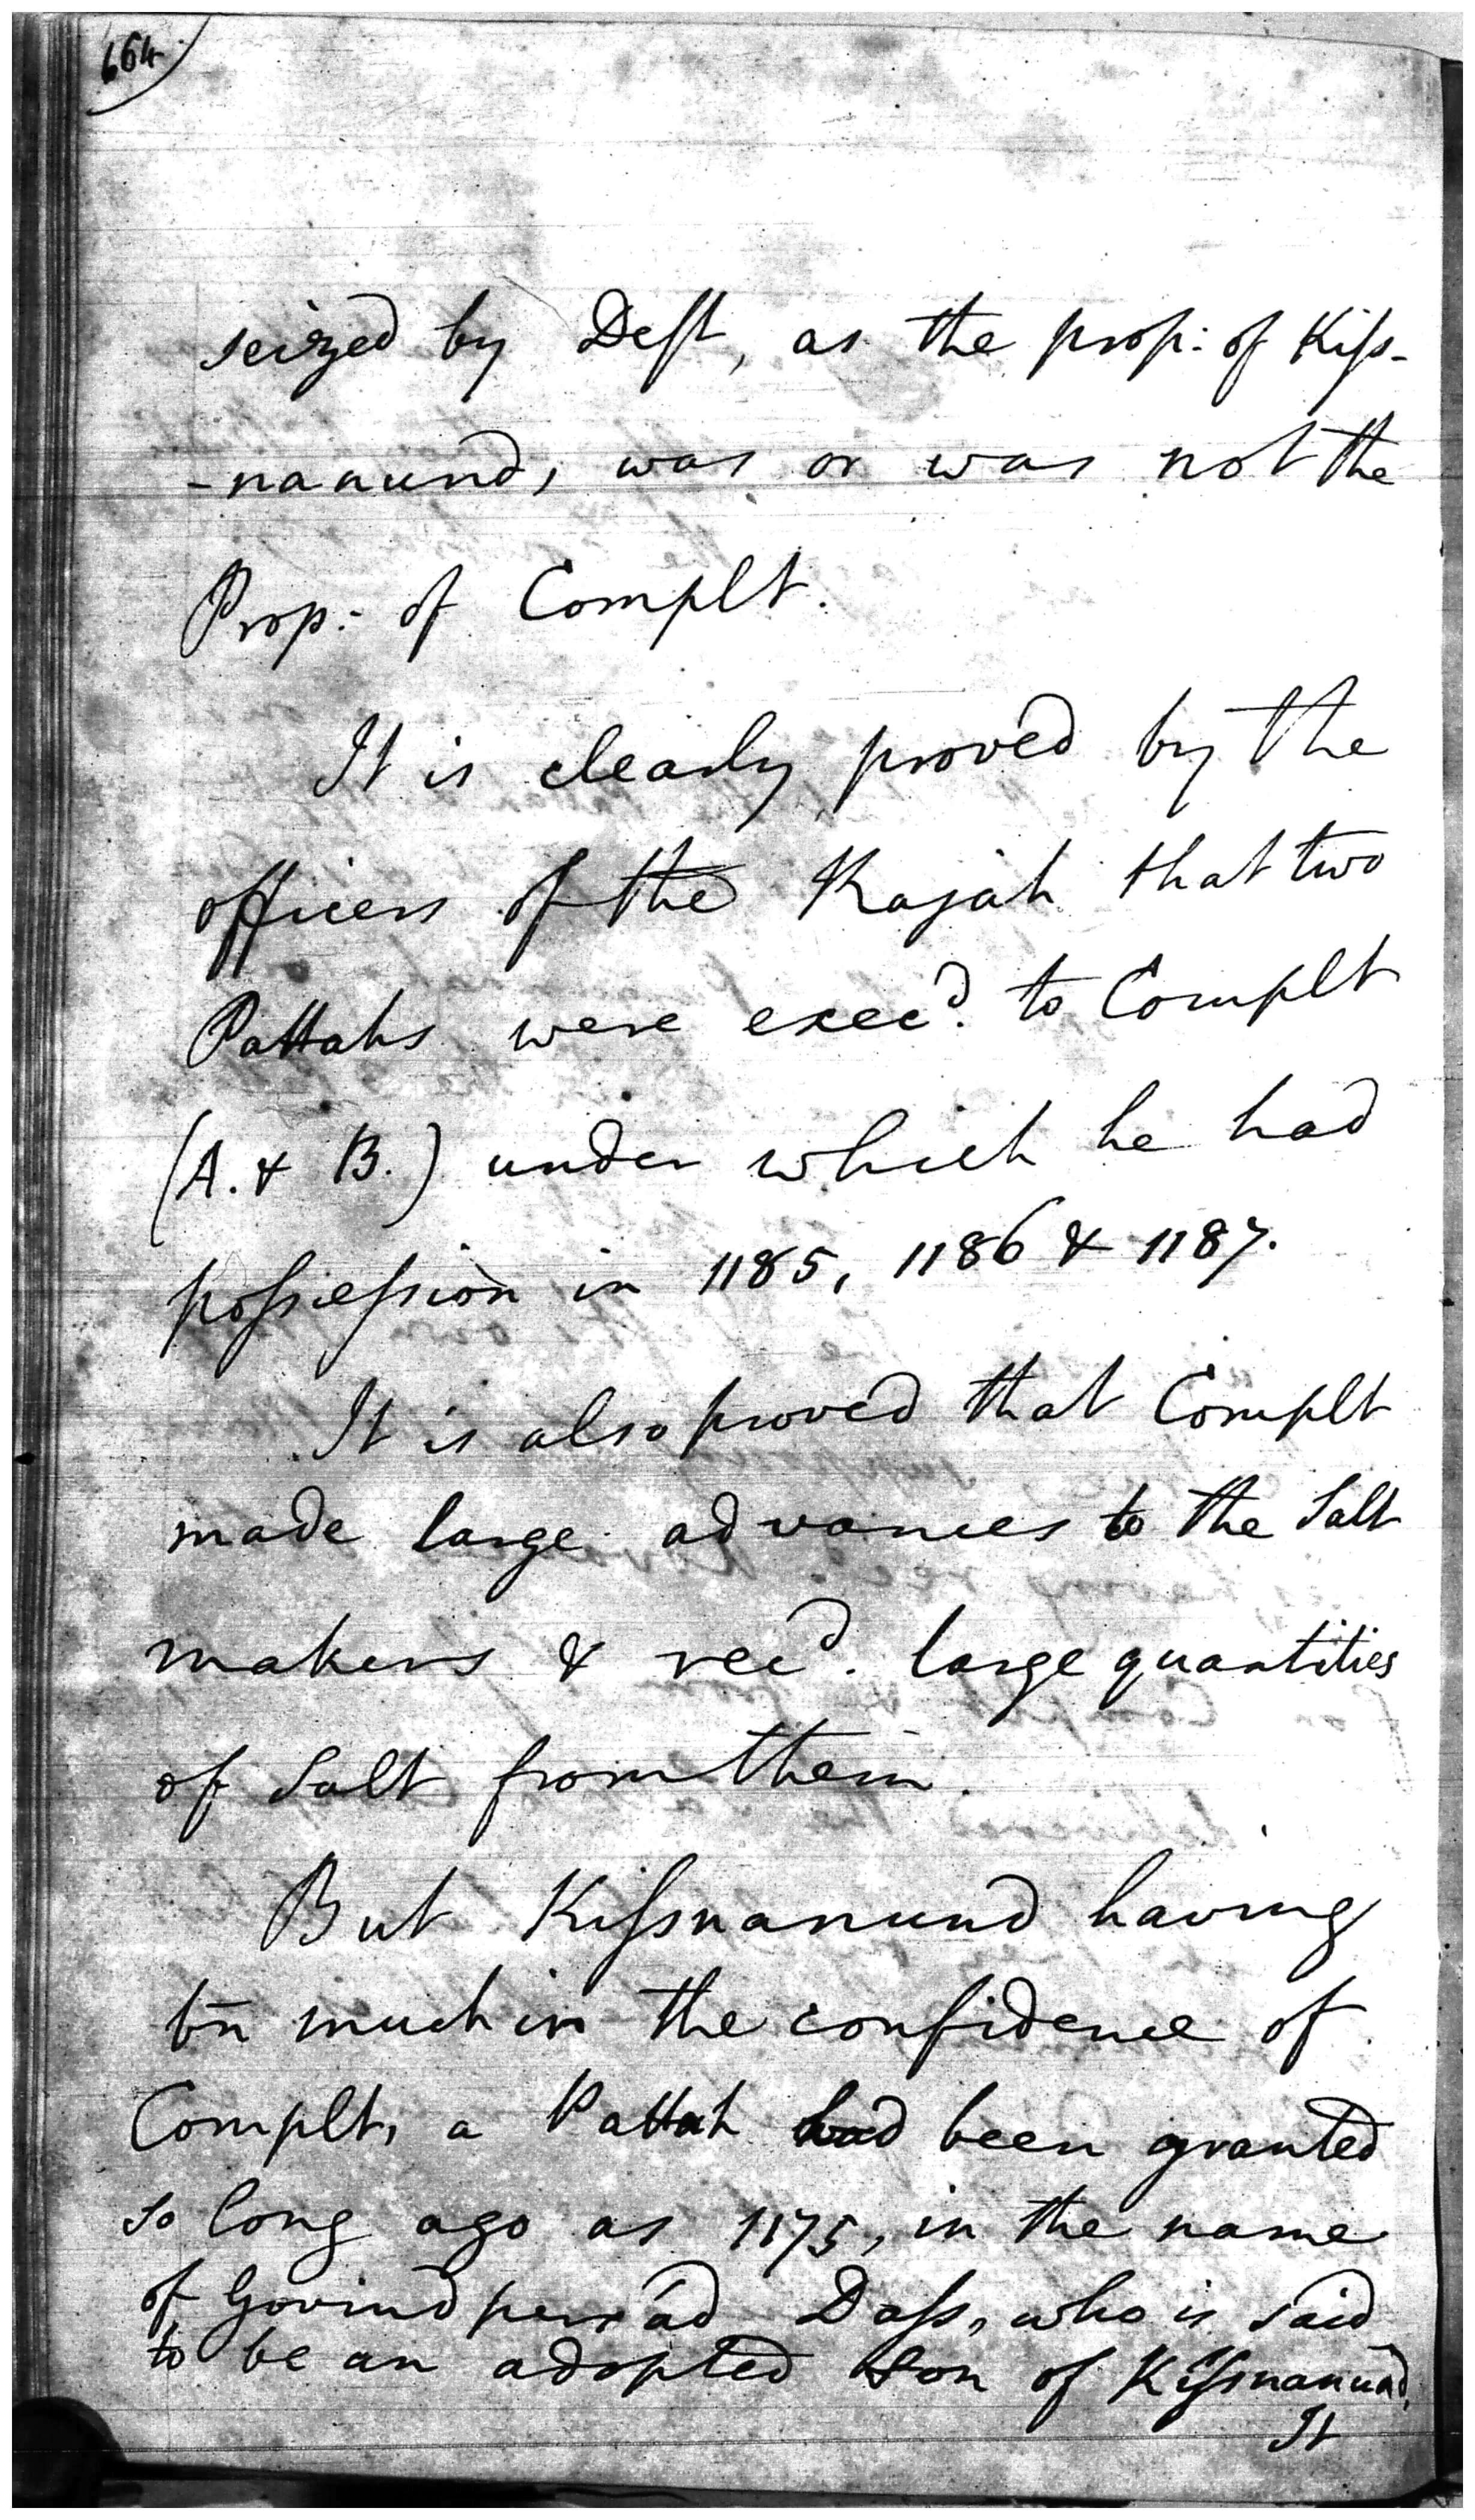 664
seized by Deft, as the prop: of Kiss-
-nanund, was or was not the
Prop:- of Complt.
It is clearly proved by the
officers of the Rajah that two
Pattahs were execd. to Complt
(A. & B.) under which he had
possession in 1185, 1186 & 1187.
It is also proved that Complt
made large advances to the Salt
makers & recd. large quantities
of Salt from them.
But Kissnanund having
bn much in the confidence of
Complt, a Pattah had been granted
so long ago as 1175, in the name
of Govindpersad Dass, who is said
to be an adopted Son of Kissnanund,
It